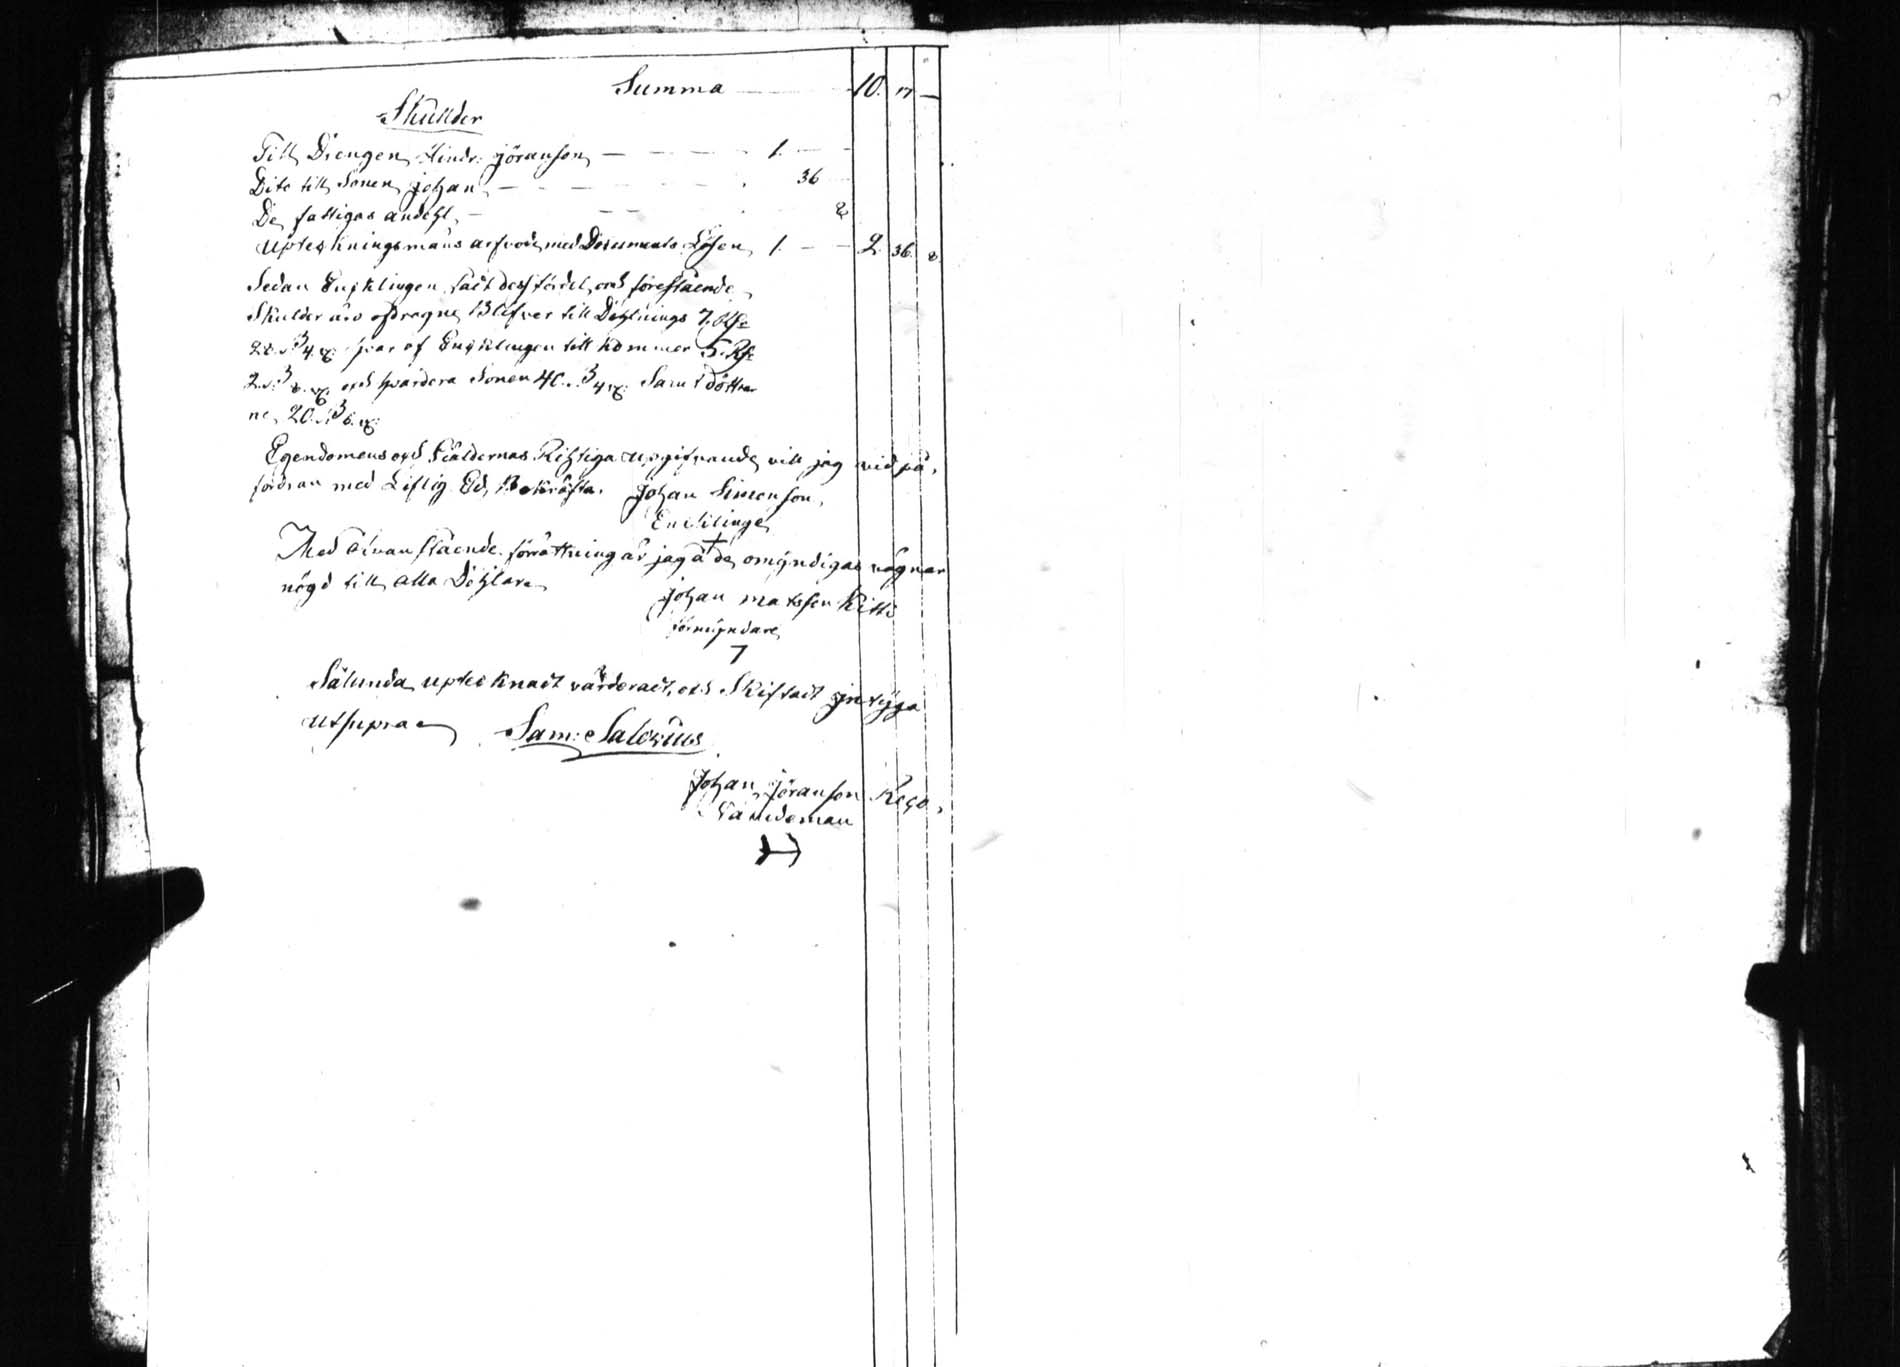 Summa — 10. 17 —
Skulder
Till Drengen Hindr: Jöranson — 1. — —
Dito till Sonen Johan — 36
De fattigas andehl — 8
Upteckningsmans arfvode med Documents Lösen 1. — — 2. 36. 8
Sedan Enklingen fådt dess fördel, och förestående
Skulder äro afdragne, Blifver till Dehlnings 7. Rd:r
28 s: 4 r: hvar af Enklingen till kommer 5. Rd:r
2 s: 8 r: och hvardera Sonen 40 s: 4 r: Samt döttrar
ne, 20 s: r:
Egendomens och Giäldernas Richtiga upgifvande vill jag vid på,
fordran med Liflig Ed, Bekräfta. Johan Simonson,
Encklinge
Med ofvanstående förrättning är jag å de omyndigas vägnar
nögd till alla Dehlar.
Johan Matsson Kitti
förmyndare
Sålunda uptecknadt värderadt, och Skiftadt intyga
Utsupra
Sam: Salovius
Johan Jöranson
Nämdeman